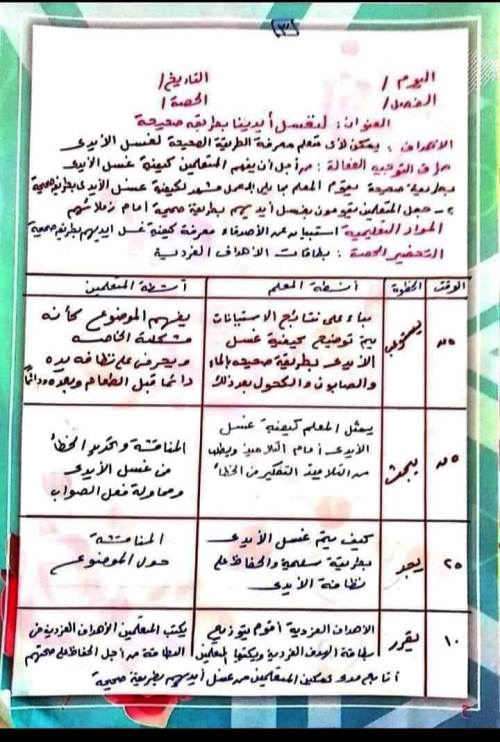 [٣]
اليوم / التاريخ /
الفصل / الحصة /
العنوان : لنغسل أيدينا بطريقة صحيحة
الأهداف : يمكن لأى متعلم معرفة الطريقة الصحيحة لغسل الأيدى
طرق التوجيه الفعالة : من أجل أن يفهم المتعلمين كيفية غسل الأيدى
بطريقة صحيحة يقوم المعلم بما يلى مشهد لكيفية غسل الأيدى بطريقة صحيحة
٢- جعل المتعلمين يقومون بغسل أيديهم بطريقة صحيحة أمام زملائهم
المواد التعليمية استبيان عن الأصدقاء معرفة كيفية غسل ايديهم بطريقة صحيحة
التحضير للحصة : بطاقات الأهداف الفردية
الوقت الخطوة أنشطة المعلم أنشطة المتعلمين
بناء على نتائج الاستبيانات
يتم توضيح كيفية غسل
الأيدى بطريقة صحيحة بالماء
والصابون والكحول بعد ذلك
يفهم الموضوع كأنه
مشكلته الخاصة
ويحرص على نظافة يده
دائما قبل الطعام وبعده ودائما
يبحث
يمثل المعلم كيفية غسل
الأيدى أمام التلاميذ ويطلب
من التلاميذ التفكير فى الخطأ
المناقشة وتحديد الخطأ
فى غسل الأيدى
ومحاولة فعل الصواب
٢٥
يجد
كيف يتم غسل الأيدى
بطريقة سليمة والحفاظ على
نظافة الأيدى
المناقشة
حول الموضوع
١٠
يقرر
الأهداف الفردية أقوم بتوزيع
بطاقة الهدف الفردية ويكتبها المتعلمين
يكتب المتعلمين الأهداف الفردية فى
البطاقة من أجل الحفاظ على صحتهم
أتابع مدى تمكين المتعلمين من غسل أيديهم بطريقة صحيحة